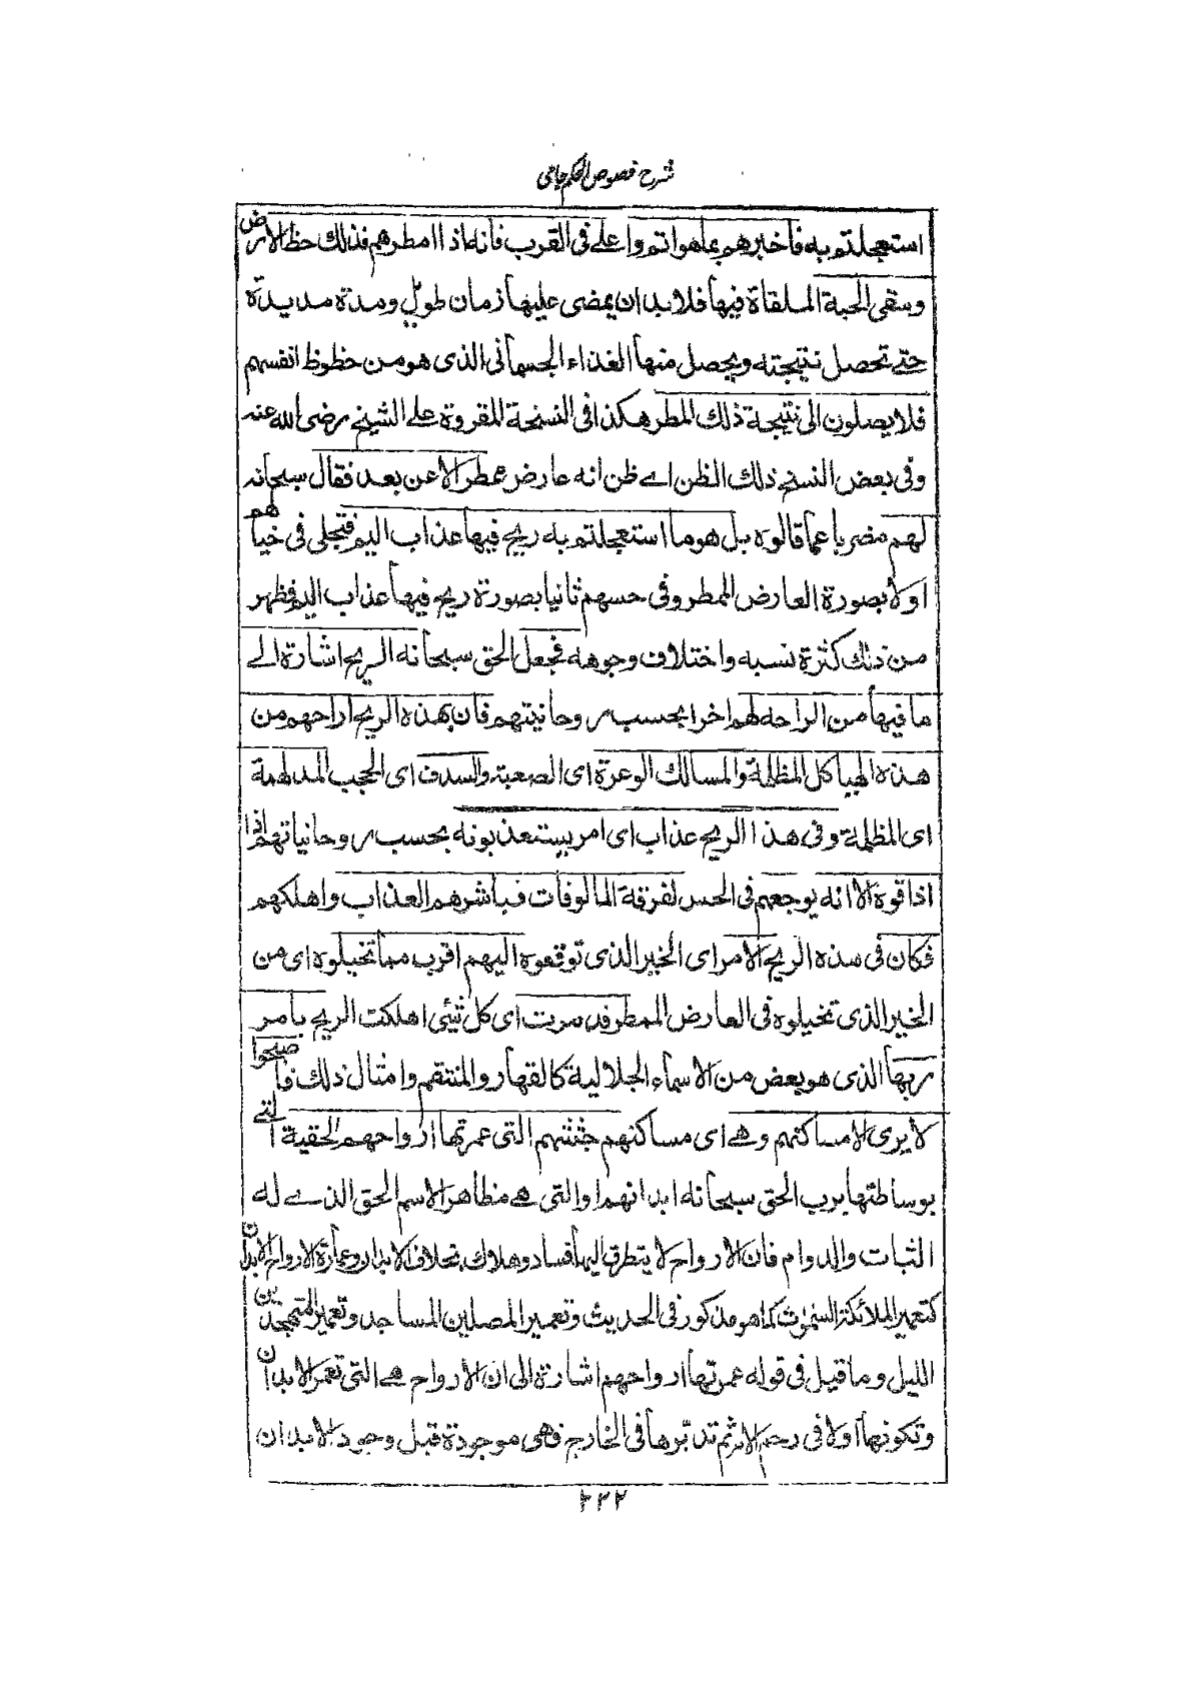 شرح فصوص الحكم جامی
استعجلتم به فاخبرهم بما هو اتم واعلی فی القرب فانه اذا امطرهم فذلك حظ الارض
وسقی الحبة الملقاة فیها فلا بد ان یمضی علیها زمان طویل ومدة مدیدة
حتی تحصل نتیجته ویحصل منها الغذاء الجسمانی الذی هو من حظوظ انفسهم
فلا یصلون الی نتیجة ذلك المطر هكذا فی النسخة المقروة علی الشیخ رضی الله عنه
وفی بعض النسخ ذلك الظن ای ظن انه عارض ممطر الا عن بعد فقال سبحانه
لهم مضربا عما قالوه بل هو ما استعجلتم به ریح فیها عذاب الیم فتجلی فی خیالهم
اولا بصورة العارض الممطر وفی حسهم ثانیا بصورة ریح فیها عذاب الیم فظهر
من ذلك كثرة نسبه واختلاف وجوهه فجعل الحق سبحانه الریح اشارة الی
ما فیها من الراحه لهم اخرا بحسب روحانیتهم فان بهذه الریح اراحهم من
هذه الهیاكل المظلمة والمسالك الوعرة ای الصعبة والسدف ای الحجب المدلهمة
ای المظلمة وفی هذا الریح عذاب ای امر یستعذبونه بحسب روحانیاتهم اذا
اذاقوه الا انه یوجعهم فی الحس لفرقة المالوفات فباشرهم العذاب واهلكهم
فكان فی هذه الریح الامر ای الخیر الذی توقعوه الیهم اقرب مما تخیلوه ای من
الخیر الذی تخیلوه فی العارض الممطر فدمرت ای كل شیٔ اهلكت الریح بامر
ربها الذی هو بعض من الاسماء الجلالیة كالقهار والمنتقم وامثال ذلك فاصبحوا
لا یری الا مساكنهم وهی ای مساكنهم جثثهم التی عمرتها ارواحهم الحقیة التی
بوساطتها یرب الحق سبحانه ابدانهم او التی هی مظاهر الاسم الحق الذی له
الثبات والدوام فان الارواح لا یتطرق الیها فساد وهلاك بخلاف الابدان وعمارة الارواح الابدان
كتعمیر الملائكة السموت كما هو مذكور فی الحدیث وتعمیر المصلین المساجد وتعمیر المتهجدین
اللیل وما قیل فی قوله عمرتها ارواحهم اشارة الی ان الارواح هی التی تعمر الابدان
وتكونها اولا فی رحم الام ثم تدبرها فی الخارج فهی موجودة قبل وجود الابدان
۲۳۲